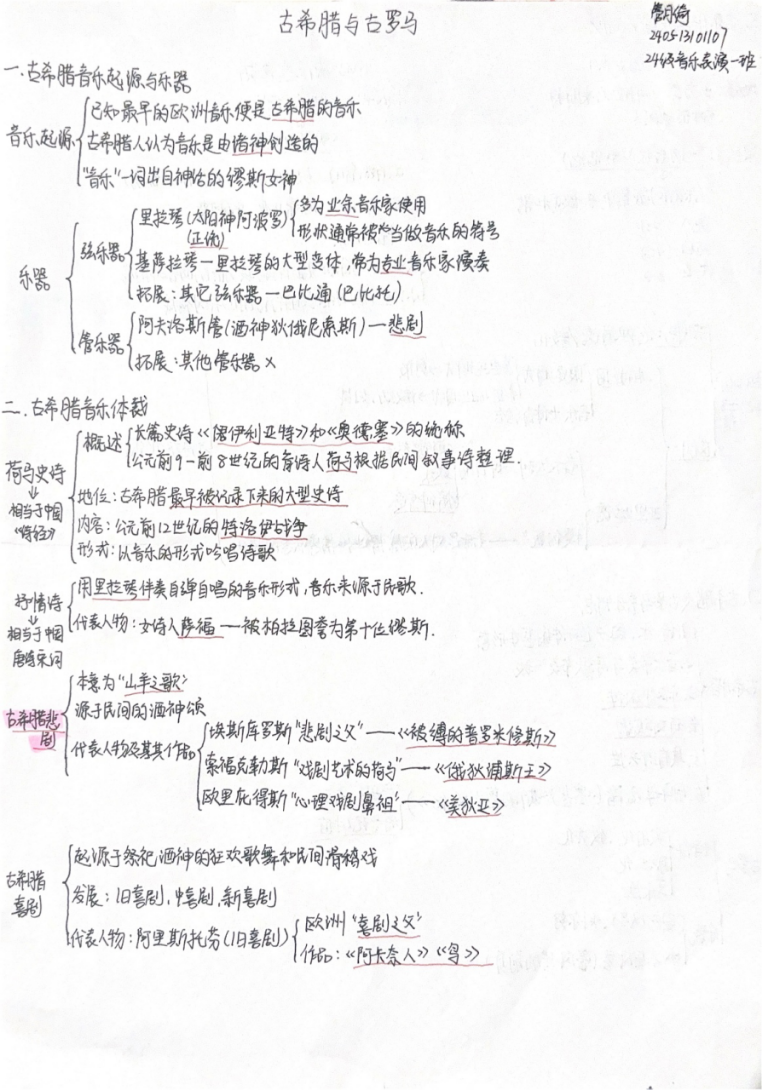 古希腊与古罗马
240513101107
24级音乐表演一班
一.古希腊音乐起源与乐器
音乐起源
已知最早的欧洲音乐便是古希腊的音乐
古希腊人认为音乐是由诸神创造的
"音乐"一词出自神话的缪斯女神
乐器
弦乐器
里拉琴(太阳神阿波罗)
(正统)
多为业余音乐家使用
形状通常被当做音乐的符号
基萨拉琴—里拉琴的大型变体,常为专业音乐家演奏
拓展:其它弦乐器—巴比通(巴比托)
管乐器
阿夫洛斯管(酒神狄俄尼索斯)—悲剧
拓展:其他管乐器 ×
二.古希腊音乐体裁
荷马史诗
相当于中国
《诗经》
概述
长篇史诗《伊利亚特》和《奥德塞》的统称
公元前9-前8世纪的盲诗人荷马根据民间叙事诗整理.
地位:古希腊最早被记录下来的大型史诗
内容:公元前12世纪的特洛伊战争
形式:以音乐的形式吟唱诗歌
抒情诗
相当于中国
唐诗宋词
用里拉琴伴奏自弹自唱的音乐形式,音乐来源于民歌.
代表人物:女诗人萨福—被柏拉图誉为第十位缪斯.
古希腊悲剧
本意为"山羊之歌"
源于民间的酒神颂
代表人物及其作品
埃斯库罗斯"悲剧之父"——《被缚的普罗米修斯》
索福克勒斯"戏剧艺术的荷马"——《俄狄浦斯王》
欧里庇得斯"心理戏剧鼻祖"——《美狄亚》
古希腊
喜剧
起源于祭祀酒神的狂欢歌舞和民间滑稽戏
发展:旧喜剧,中喜剧,新喜剧
代表人物:阿里斯托芬(旧喜剧)
欧洲"喜剧之父"
作品:《阿卡奈人》《鸟》